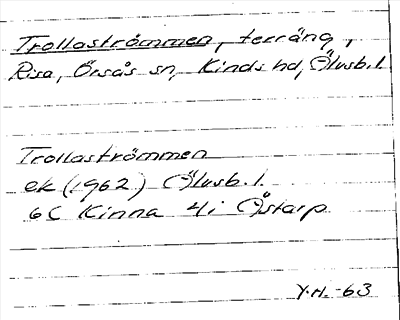 Trollaströmmen, terräng,
Risa, Örsås sn, Kinds hd, Älvsb. l.
Trollaströmmen
ek (1962) Älvsb. l.
6C Kinna 4i Östarp
Y.H. -63